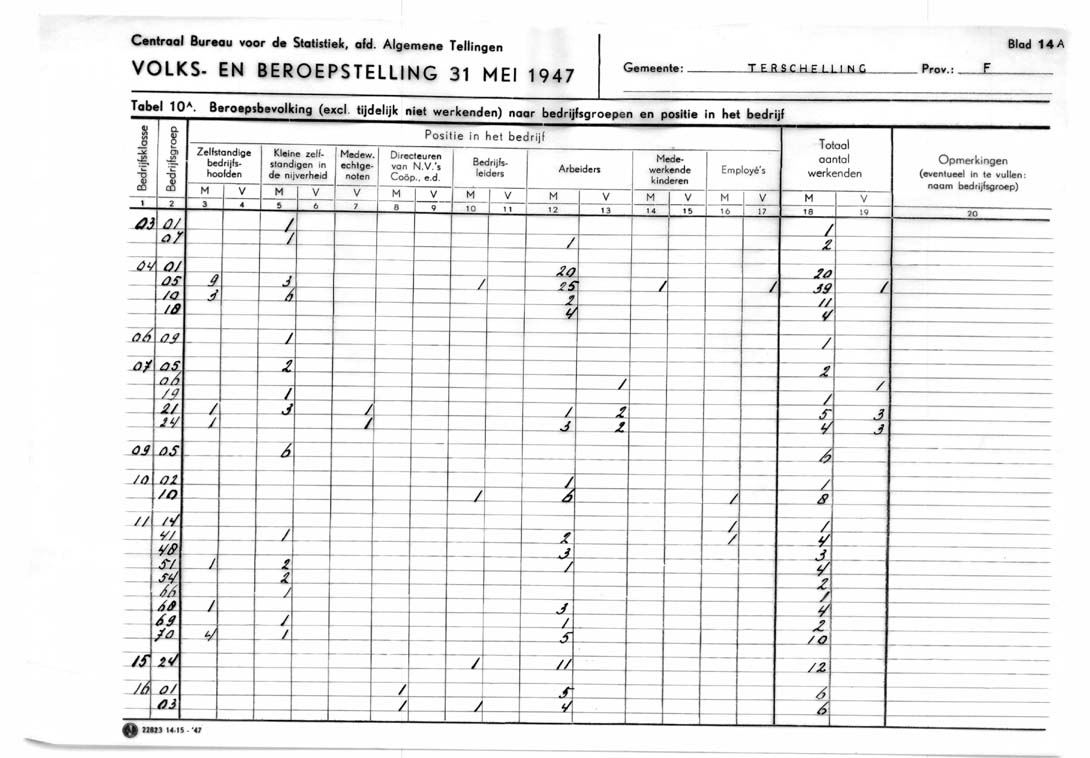 Centraal Bureau voor de Statistiek, afd. Algemene Tellingen
Blad 14 A
VOLKS- EN BEROEPSTELLING 31 MEI 1947
Gemeente: TERSCHELLING Prov.: F
Tabel 10A. Beroepsbevolking (excl. tijdelijk niet werkenden) naar bedrijfsgroepen en positie in het bedrijf
Bedrijfsklasse
Bedrijfsgroep
Positie in het bedrijf
Zelfstandige bedrijfs- hoofden
Kleine zelf- standigen in de nijverheid
Medew. echtge- noten
Directeuren van N.V.'s Coöp., e.d.
Bedrijfs- leiders
Arbeiders
Mede- werkende kinderen
Employé's
Totaal aantal werkenden
Opmerkingen (eventueel in te vullen: naam bedrijfsgroep)
M V M V V M V M V M V M V M V M V
1 2 3 4 5 6 7 8 9 10 11 12 13 14 15 16 17 18 19 20
03 01 1 1
07 1 1 2
04 01 20 20
05 9 3 1 25 1 1 39 1
10 3 6 2 11
18 4 4
06 09 1 1
07 05 2 2
06 1 1
19 1 1
21 1 3 1 1 2 5 3
24 1 1 3 2 4 3
09 05 6 6
10 02 1 1
10 1 6 1 8
11 14 1 1
41 1 2 1 4
48 3 3
51 1 2 1 4
54 2 2
66 1 1
68 1 3 4
69 1 1 2
70 4 1 5 10
15 24 1 11 12
16 01 1 5 6
03 1 1 4 6
22823 14-15 - '47